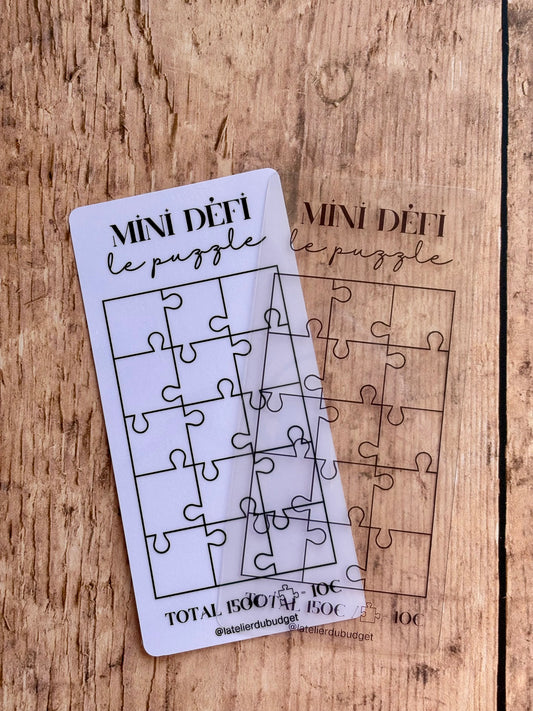 MINI DÉFI
le puzzle
TOTAL 150€ - 10€
@latelierdubudget
MINI DÉFI
le puzzle
TOTAL 150€ / - 10€
@latelierdubudget